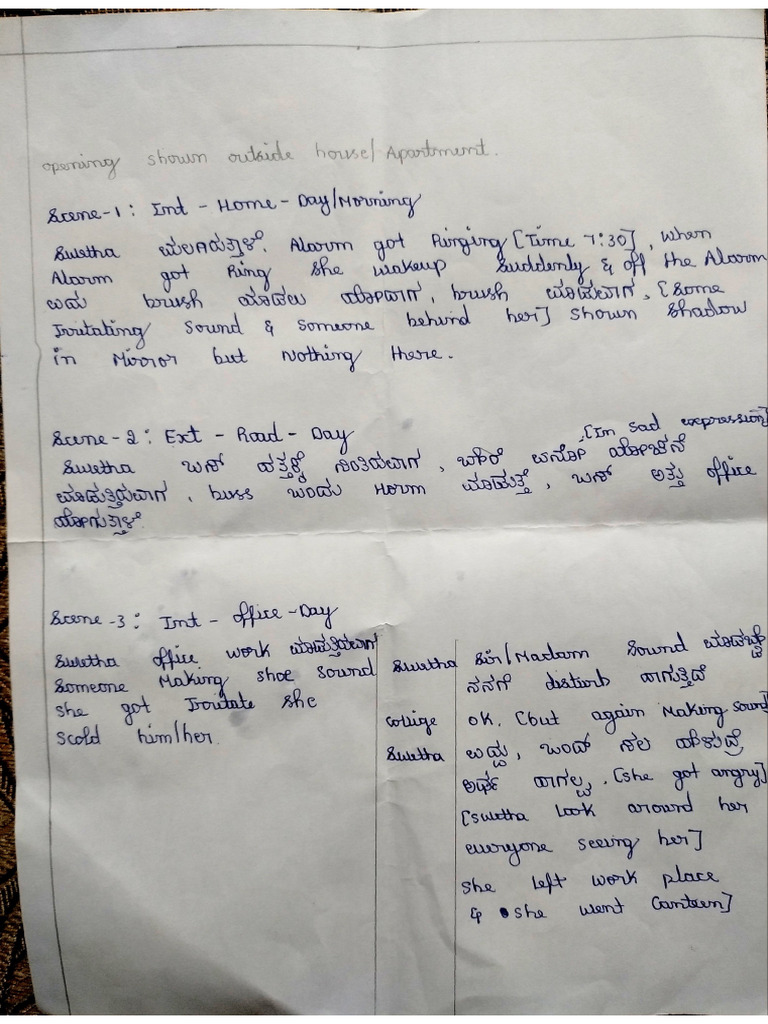 opening shown outside house/Apartment.
Scene-1: Int - Home - Day/Morning
Swetha ಮಲಗಿರುತ್ತಾಳೆ. Alarm got Ringing [Time 7:30], when
Alarm got Ring she wakeup Suddenly & off the Alarm
ಎದ್ದು brush ಮಾಡಲು ಹೋದಾಗ, brush ಮಾಡುವಾಗ, [Some
Irritating Sound & someone behind her] shown Shadow
in Mirror but Nothing there.
Scene-2: Ext - Road - Day
[In Sad expression]
Swetha ಬಸ್ ಹತ್ತಕ್ಕೆ ನಿಂತಿರುವಾಗ, ಬೇರೆ ಏನೋ ಯೋಚನೆ
ಮಾಡುತ್ತಿರುವಾಗ, buss ಬಂದು Hourn ಮಾಡುತ್ತೆ, ಬಸ್ ಅತ್ತು office
ಹೋಗುತ್ತಾಳೆ
Scene-3: Int - office - Day
Swetha office work ಮಾಡುತ್ತಿರುವಾಗ
Someone Making shoe Sound
she got Irritate she
Scold him/her.
Swetha Sir/Madam Sound ಮಾಡಬೇಡಿ
ನನಗೆ disturb ಆಗುತ್ತಿದೆ
collige OK. [but again Making sound]
Swetha ಎದ್ದು, ಒಂದ್ ಸಲ ಹೇಳುದ್ರೆ
ಅರ್ಥ ಆಗಲ್ವ. [she got angry]
[Swetha look around her
everyone seeing her]
she left work place
& she went Canteen]